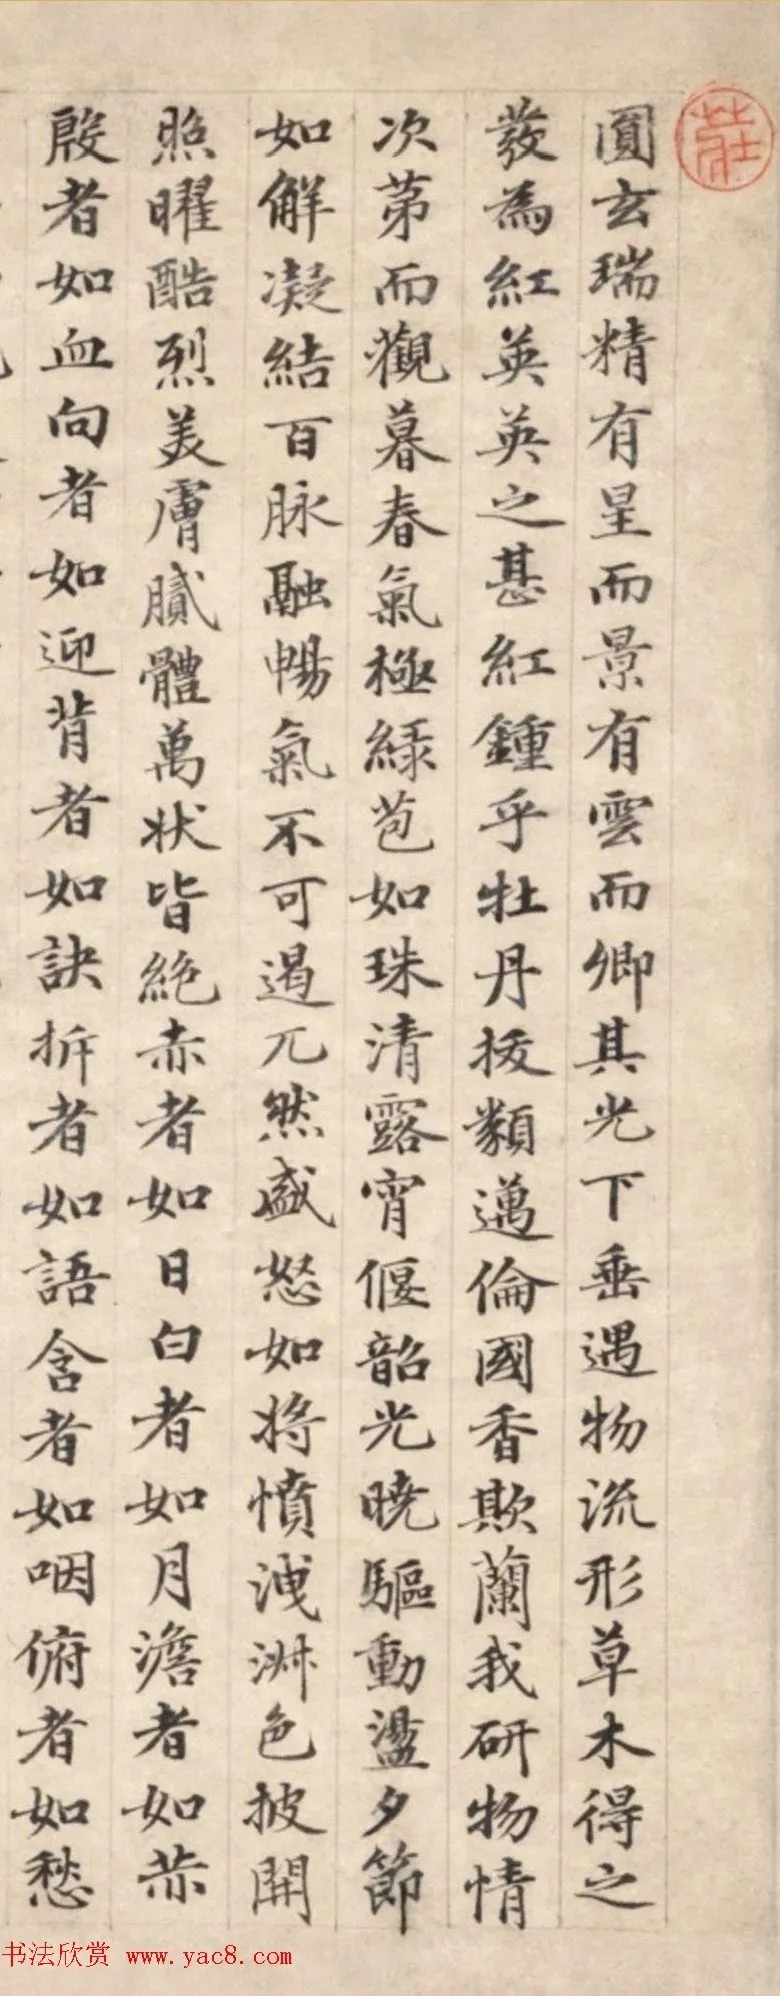 圓玄瑞精有星而景有雲而卿其光下垂遇物流形草木得之
發為紅英英之甚紅鍾乎牡丹拔類邁倫國香欺蘭我研物情
次苐而觀暮春氣極綠苞如珠清露宵偃韶光曉驅動盪夕節
如解凝結百脉融暢氣不可遏兀然盛怒如將憤洩淋色披開
照曜酷烈美膚膩體萬狀皆絕赤者如日白者如月澹者如赤
殷者如血向者如迎背者如訣拆者如語含者如咽俯者如愁
莊
书法欣赏 www.yac8.com